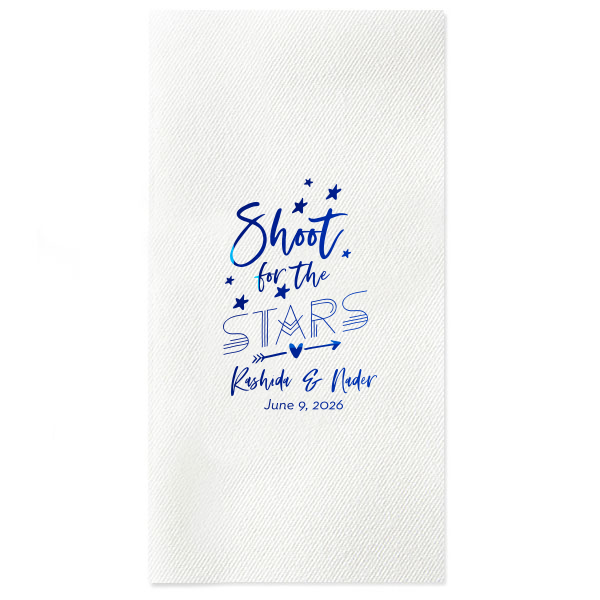 Shoot
for the
STARS
Rashida & Nader
June 9, 2026